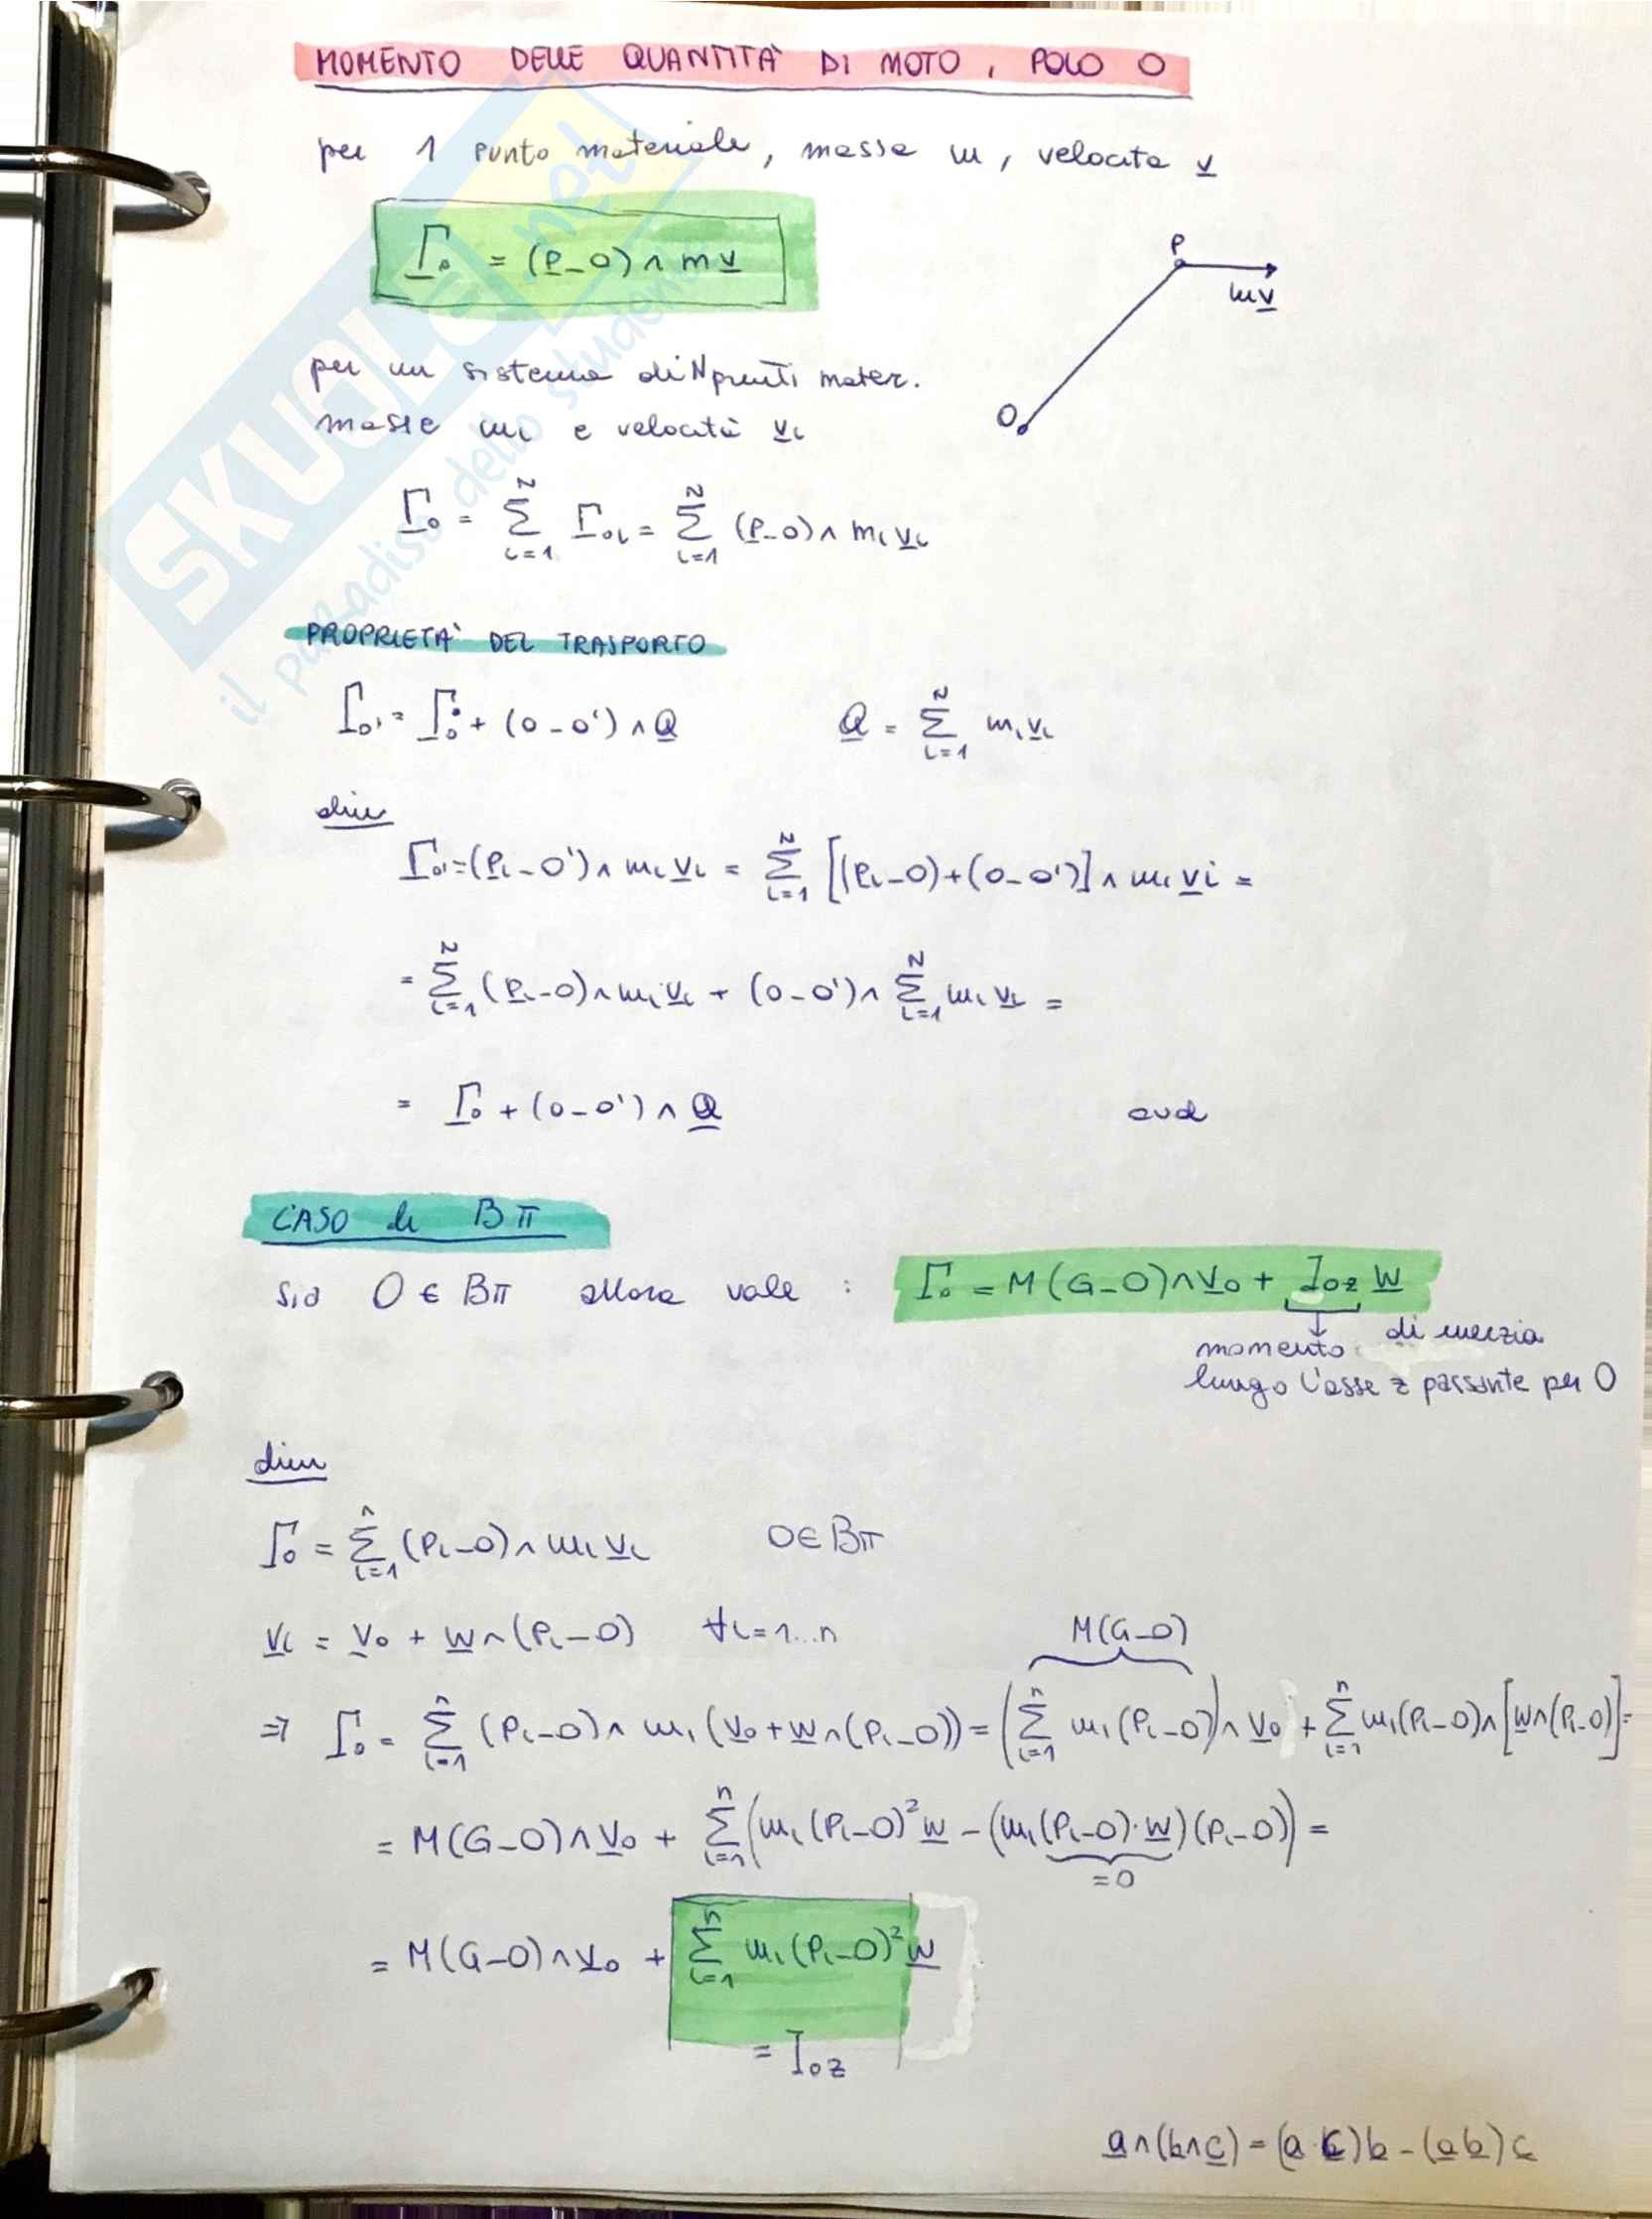 MOMENTO DELLE QUANTITA' DI MOTO, POLO O
per 1 punto materiale, massa m, velocita v
Γo = (P-O) ∧ mv
P
mv
O
per un sistema di N punti mater.
masse mi e velocità vi
Γo = Σ(i=1, N) Γoi = Σ(i=1, N) (P-O) ∧ mi vi
PROPRIETA' DEL TRASPORTO
Γo' = Γo + (O-O') ∧ Q    Q = Σ(i=1, N) mi vi
dim
Γo' = (Pi-O') ∧ mi vi = Σ(i=1, N) [(Pi-O)+(O-O')] ∧ mi vi =
= Σ(i=1, N) (Pi-O) ∧ mi vi + (O-O') ∧ Σ(i=1, N) mi vi =
= Γo + (O-O') ∧ Q    cvd
CASO di Bπ
sia O ∈ Bπ allora vale : Γo = M(G-O) ∧ vo + Ioz w
momento di inerzia
lungo l'asse z passante per O
dim
Γo = Σ(i=1, n) (Pi-O) ∧ mi vi    O ∈ Bπ
vi = vo + w ∧ (Pi-O)    ∀i=1...n
M(G-O)
⇒ Γo = Σ(i=1, n) (Pi-O) ∧ mi (vo + w ∧ (Pi-O)) = (Σ(i=1, n) mi (Pi-O)) ∧ vo + Σ(i=1, n) mi (Pi-O) ∧ [w ∧ (Pi-O)] =
= M(G-O) ∧ vo + Σ(i=1, n) (mi (Pi-O)² w - (mi (Pi-O)·w)(Pi-O)) =
=0
= M(G-O) ∧ vo + Σ(i=1, n) mi (Pi-O)² w
= Ioz
a ∧ (b ∧ c) = (a·c)b - (a b)c
SKUOLA.net
il paradiso dello studente